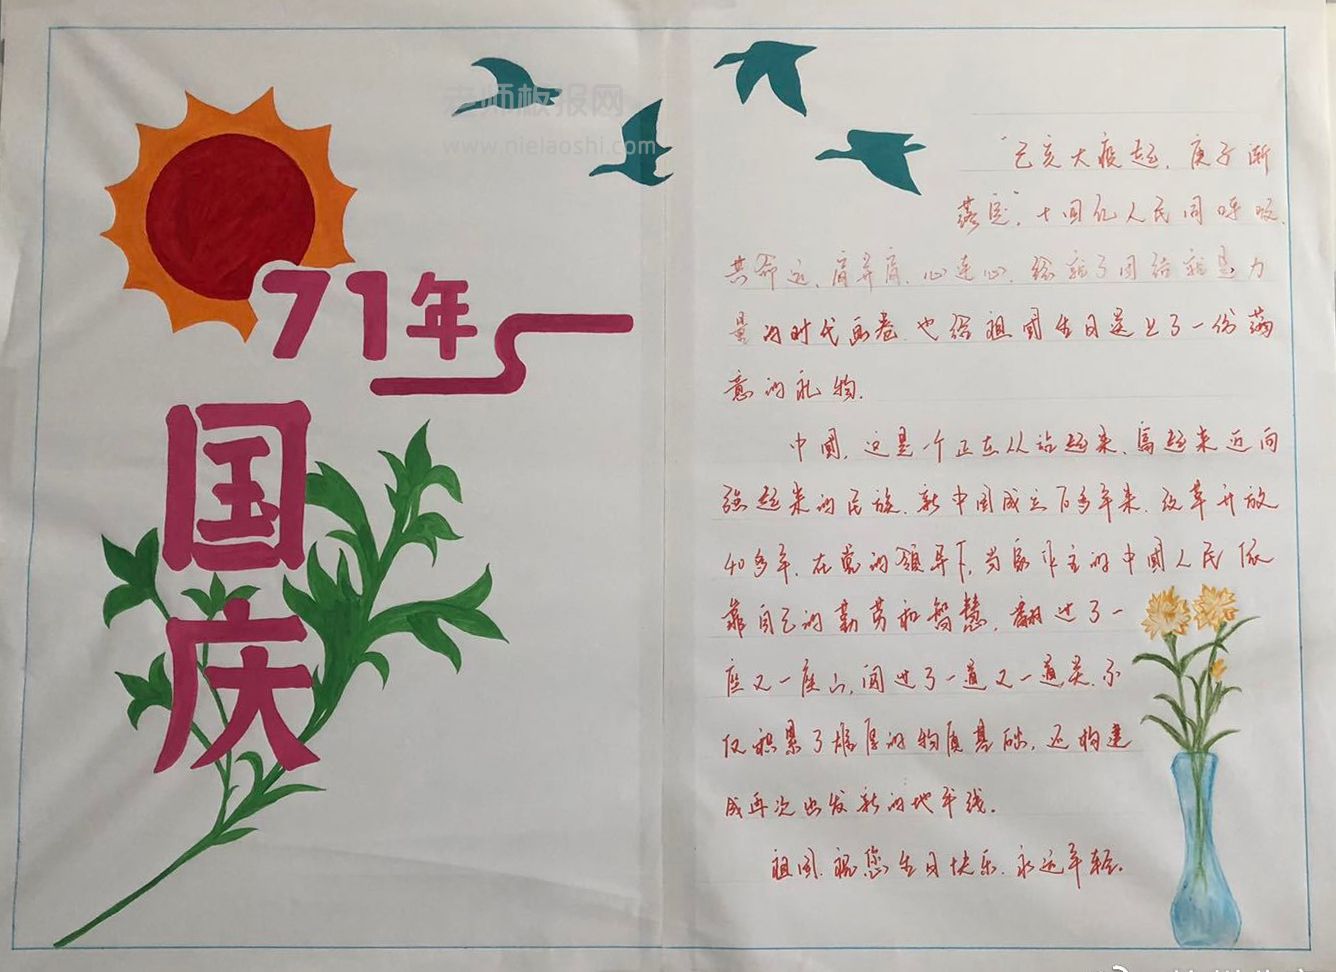 老师板报网
www.nielaoshi.com
71年
国庆
"己亥大疫起,庚子渐
落定",十四亿人民同呼吸
共命运,肩并肩,心连心,给出了团结就是力
量的时代画卷,也给祖国生日送上了一份满
意的礼物。
中国,这是一个正在从站起来、富起来迈向
强起来的民族,新中国成立70多年来,改革开放
40多年,在党的领导下,当家作主的中国人民依
靠自己的勤劳和智慧,翻过了一
座又一座山,闯过了一道又一道关,不
仅积累了雄厚的物质基础,还构建
成再次出发新的地平线。
祖国,祝您生日快乐,永远年轻。